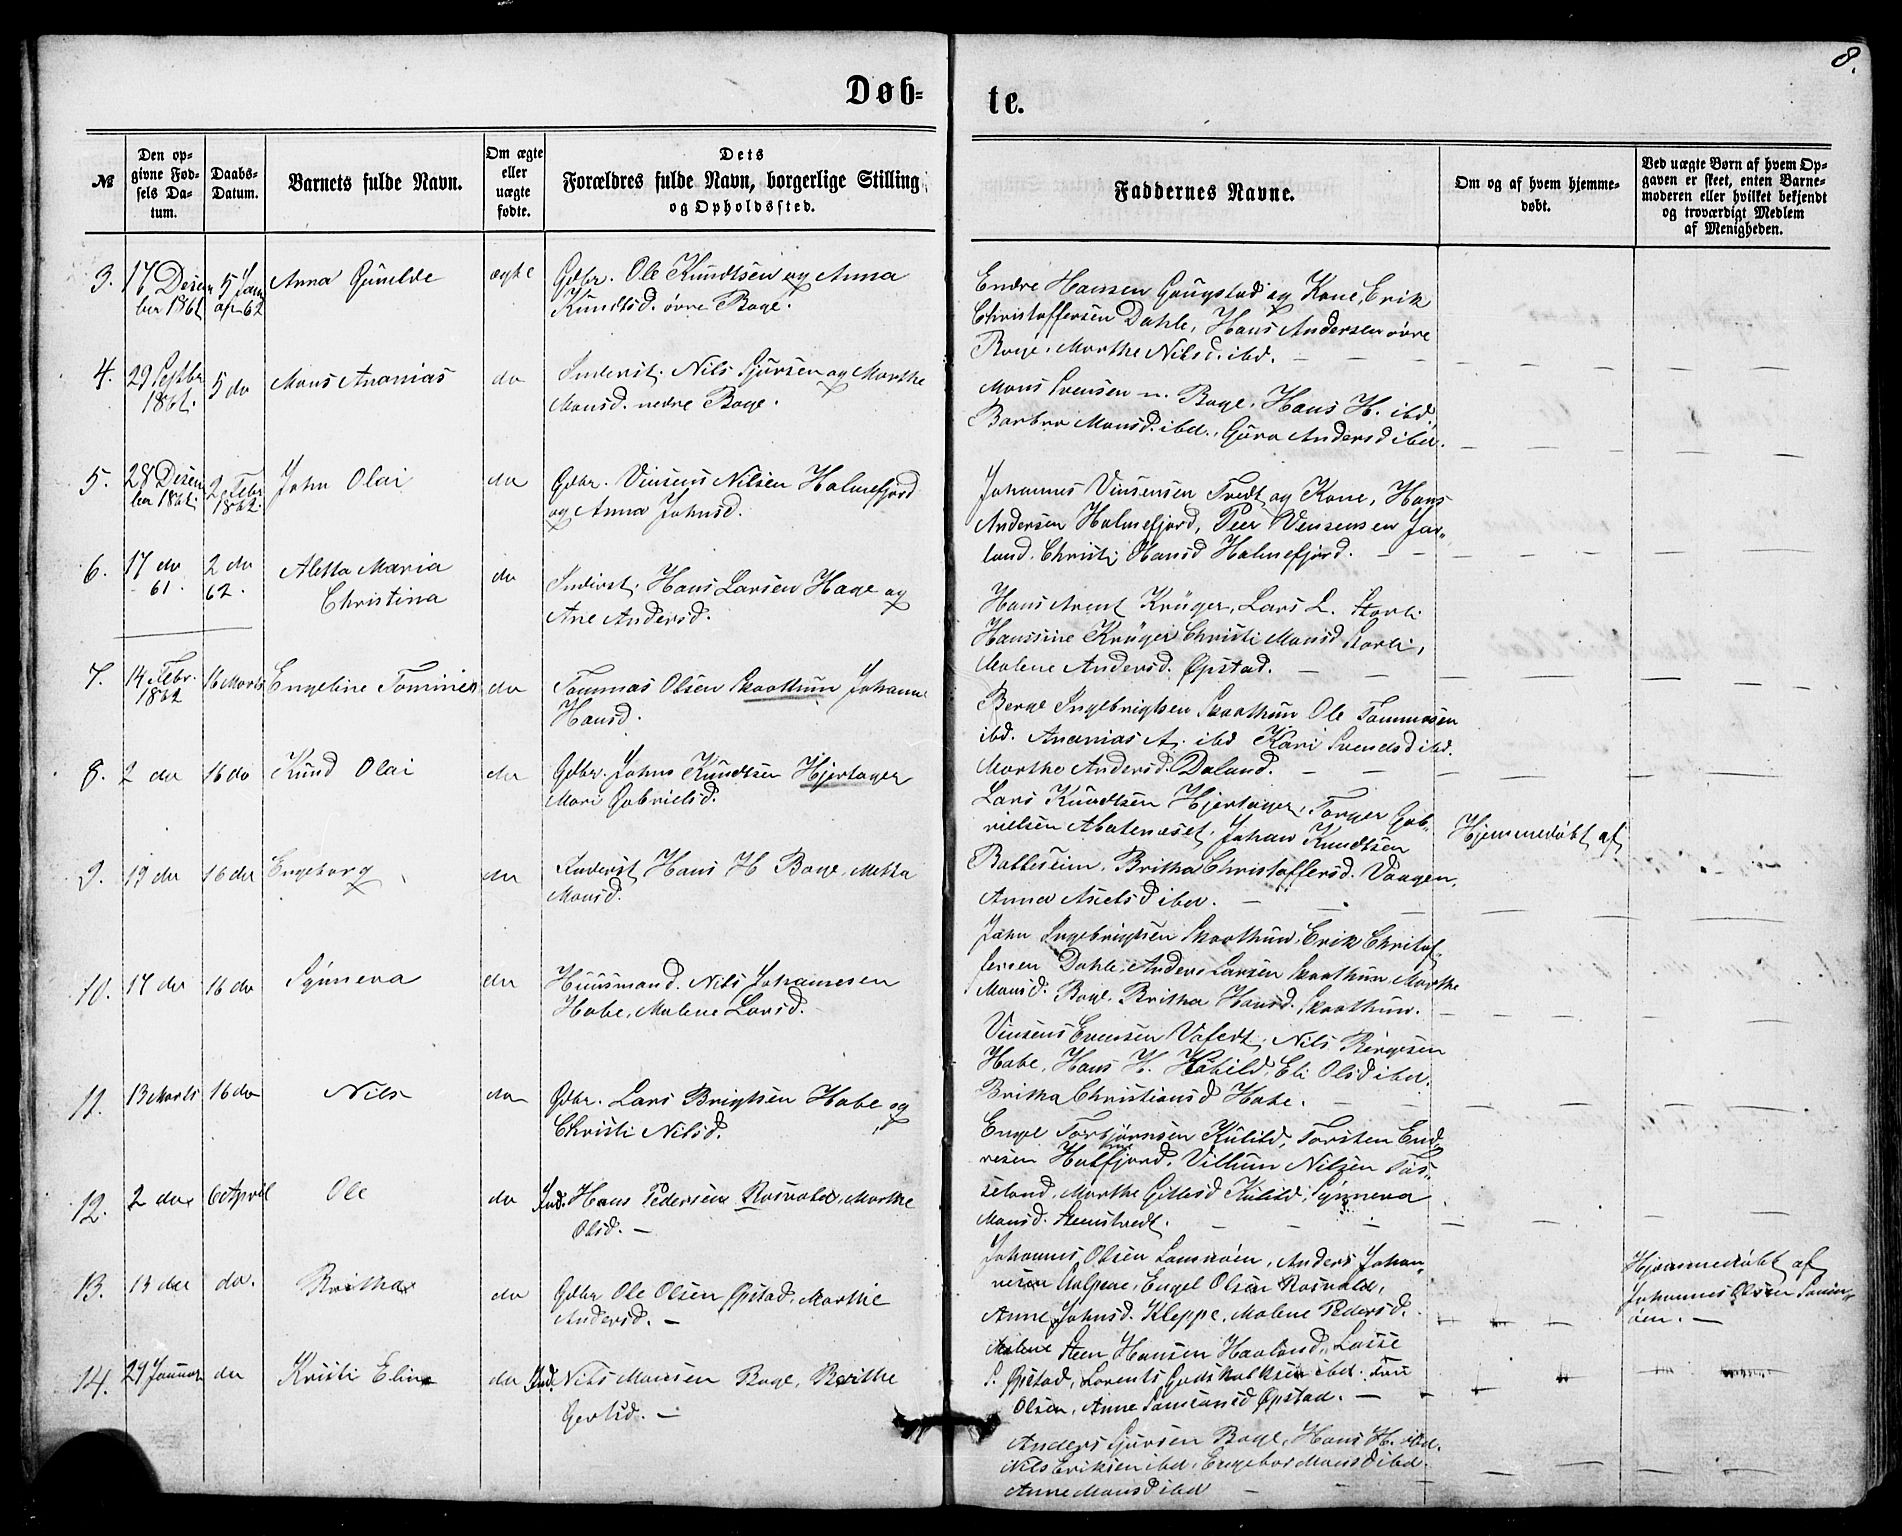 8.
Døb-
te.
№
Den op-
givne Fød-
sels Da-
tum.
Daabs-
Datum.
Barnets fulde Navn.
Om ægte
eller
uægte
fødte.
Dets
Forældres fulde Navn, borgerlige Stilling
og Opholdssted.
Faddernes Navne.
Om og af hvem hjemme-
døbt.
Ved uægte Børn af hvem Op-
gaven er skeet, enten Barne-
moderen eller hvilket bekjendt
og troværdigt Medlem
af Menigheden.
3. 17 Desem 5 Jan Anna Gunilde ægte Gdbr. Ole Knudtsen og Anna
ber 1861. 62 Knudtsd. øvre Boge.
Endre Hansen Gougstad og Kone, Erik
Christoffersen Dahle, Hans Andersen øvre
Boge, Marthe Nilsd. ibd.
4. 29 Septbr 5 do Mons Ananias do Inderst. Nils Sjursen og Marthe
1861. Monsd. nedre Boge.
Mons Svensen n. Boge, Hans H. ibd,
Barbro Monsd. ibd., Guro Andersd ibd.
5. 28 Desem 2 Febr John Olai do Gdbr. Vinsens Nilsen Holmefjord
ber 1861. 1862. og Anna Johnsd.
Johannes Vinsensen Tvedt og Kone, Hans
Andersen Holmefjord, Peer Vensensen Jar-
land. Christi Hansd Holmefjord.
6. 17 do 2 do Aletta Maria do Inderst. Hans Larsen Hage og
61. 62. Christina Ane Andersd.
Hans Arent Krüger, Lars L. Storli
Hanssine Krüger Christi Monsd Storli,
Malene Andersd. Øpstad.
7. 14 Febr. 16 Marts Engeline Tomine do Tommas Olsen Skaathun Johanne
1862 Hansd.
Berge Ingebrigtsen Skaathun Ole Tommasen
ibd. Ananias A. ibd Kari Svendsd ibd.
Marthe Andersd. Daland.
8. 2 do 16 do Knud Olai do Gdbr. Johns Knudtsen Hjertager
Mari Gabrielsd.
Lars Knudtsen Hjertager, Torger Gab-
rielsen Aboteneset, Johan Knudtsen
Botteseim, Britha Christoffersd. Vaagen,
Anna Axelsd ibd.
Hjemmedøbt af
9. 19 do 16 do Engeborg do Inderst Hans H Boge, Metta
Monsd.
John Ingebrigtsen Skaathun, Erik Christof
fersen Dahle, Anders Larsen Skaathun Marthe
Monsd. Boge. Britha Hansd. Skaathun.
10. 17 do 16 do Synneva do Huusmand. Nils Johannesen
Hobe, Malene Larsd.
Vinsens Evensen Vafedt, Nils Børgesen
Hobe, Hans H. Habild, Eli Olsd ibd.
Britha Christiansd Hobe.
11. 13 Marts 16 do Nils do Gdbr. Lars Brigtsen Hobe og
Christi Nilsd.
Engel Torbjørnsen Kulild, Torsten End-
resen Holfjord, Villum Nilsen Tøs-
seland, Marthe Gillesd Kulild, Synneva
Monsd. Stemstvedt.
12. 2 do 6 April Ole do Ind. Hans Pedersen Rosvold, Marthe
Olsd. —
Johannes Olsen Samnøen, Anders Johan-
nesen Aulpene, Engel Olsen Rosvold,
Anne Johnsd. Kleppe, Malene Pedersd.
13. 13 do do. Britha do Gdbr Ole Olsen Øpstad, Marthe
Andersd. —
Malene Steen Hansen Haaland, Lasse
S. Øpstad, Lorents Godskalksen ibd. Turi
Olsen, Anne Samsonsd Øpstad. —
Hjemmedøbt af
Johannes Olsen Samn-
øen. —
14. 29 Januar do Kristi Eline do Ind. Nils Monsen Boge, Brithe
Gertsd. —
Anders Sjursen Boge, Hans H. ibd.
Nils Eriksen ibd, Engebor Monsd ibd.
Anne Monsd ibd